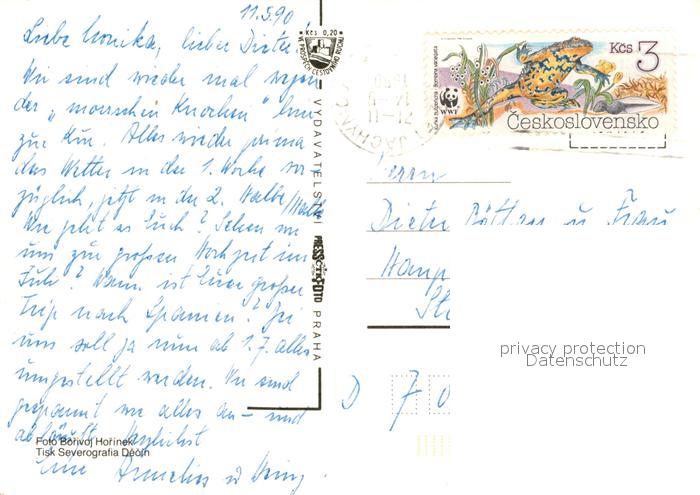 11.5.90
Liebe Monika, lieber Dieter!
Wir sind wieder mal wegen
der "morschen Knochen" hier
zur Kur. Alles wieder prima
das Wetter in der 1. Woche vor
züglich, jetzt in der 2. Halbe/Halbe
Wie geht es Euch? Sehen wir
uns zur großen Hochzeit im
Juli? Wann ist Eure große
Trip nach Spanien? Bei
uns soll ja nun ab 1.7. alles
umgestellt werden. Wir sind
gespannt wie alles an- und
abläuft. Herzlichst
Eure
Foto Bořivoj Hořínek
Tisk Severografia Děčín
Kčs 0,20
VE PROSPĚCH CESTOVNÍHO RUCHU
VYDAVATELSTVÍ PRESSFOTO PRAHA
JÁCHYMOV
Kčs 3
Bombina variegata
WWF
Československo
Herrn
Dieter u Frau
D 70
privacy protection
Datenschutz